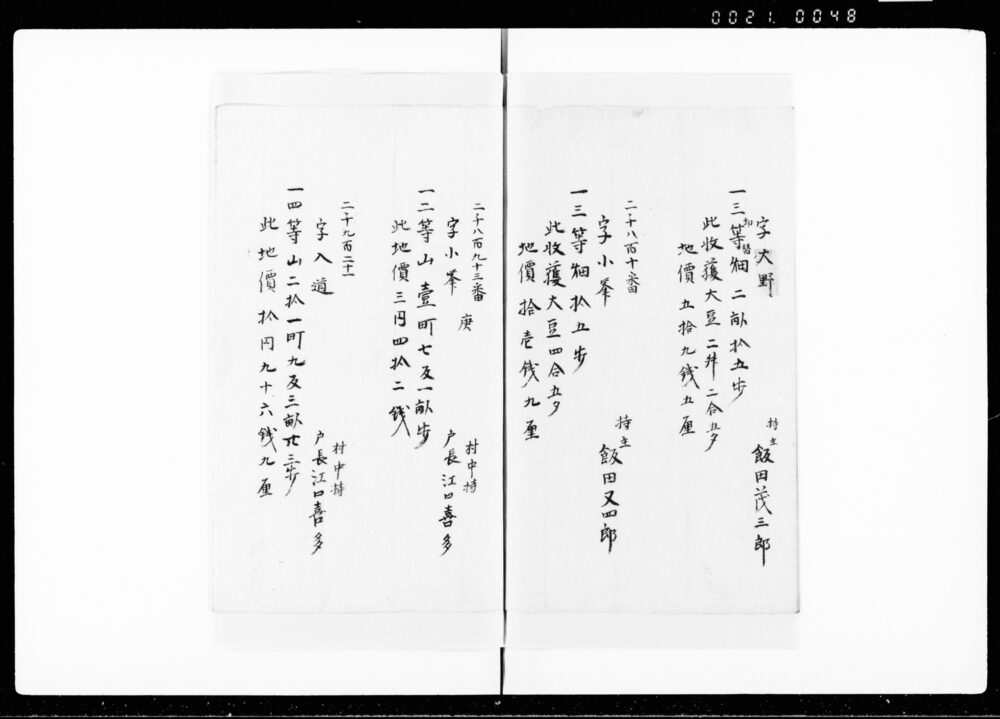 0021. 0048
字大野
切替
一三等畑 二畝拾五歩
持主 飯田茂三郎
此收獲大豆二舛二合五夕
地價五拾九錢五厘
二千八百十番
字小峯
持主 飯田又四郎
一三等畑拾五歩
此收獲大豆四合五夕
地價拾壱錢九厘
二千八百九十三番
字小峯 庚
村中持
戸長江口喜多
一二等山壹町七反一畝歩
此地價三円四拾二錢
二千九百二十一
字入道
村中持
戸長江口喜多
一四等山二拾一町九反三畝廿三歩
此地價拾円九十六錢九厘